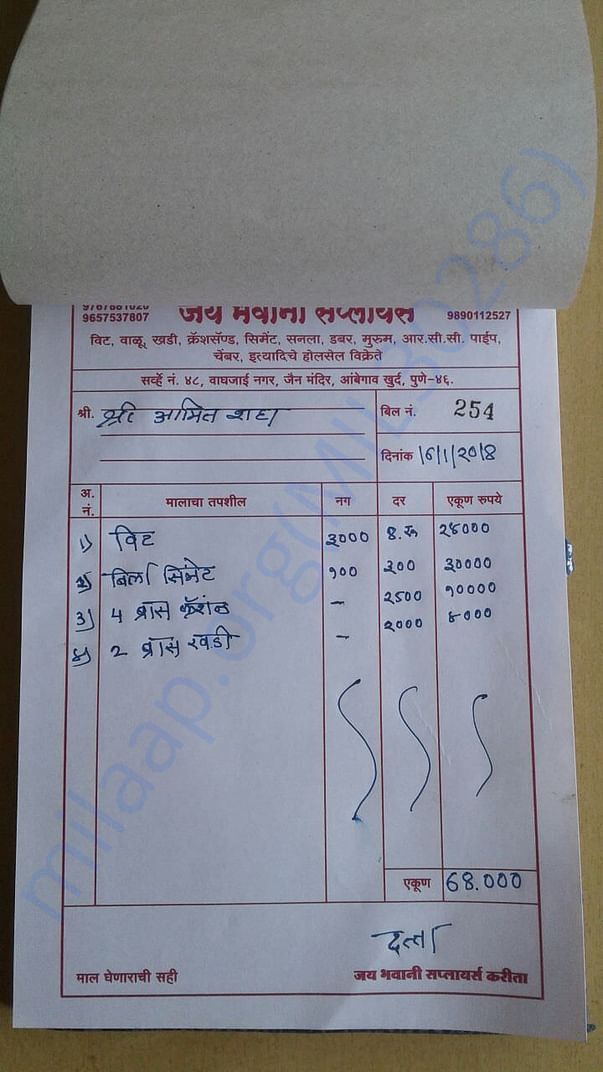 जय भवानी सप्लायर्स
9657537807 9890112527
विट, वाळू, खडी, क्रॅशसॅण्ड, सिमेंट, सनला, डबर, मुरुम, आर.सी.सी. पाईप,
चेंबर, इत्यादिचे होलसेल विक्रेते
सर्व्हे नं. ४८, वाघजाई नगर, जैन मंदिर, आंबेगाव खुर्द, पुणे-४६.
श्री. श्री अमित शहा बिल नं. 254
दिनांक 16/1/२०18
अ. नं. मालाचा तपशील नग दर एकूण रुपये
१) विट ३००० 8.रू २४०००
२) बिर्ला सिमेंट १०० ३०० ३००००
3) 4 ब्रास - २500 १००००
४) 2 ब्रास खडी - २000 ४०००
एकूण 68.000
दत्ता
माल घेणाराची सही जय भवानी सप्लायर्स करीता
milaap.org